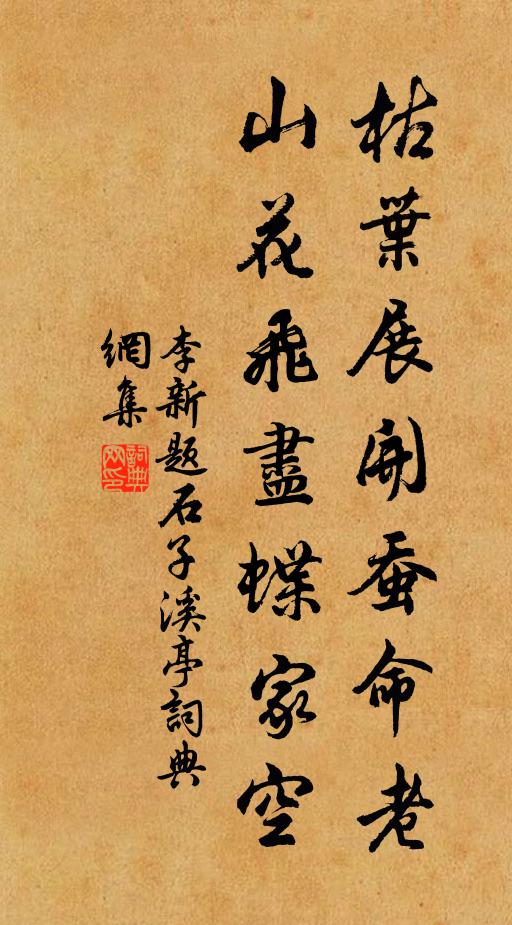 枯葉展開蚕命老
山花飛盡蝶家空
李新題石子溪亭詞典
網集
詞典
網印